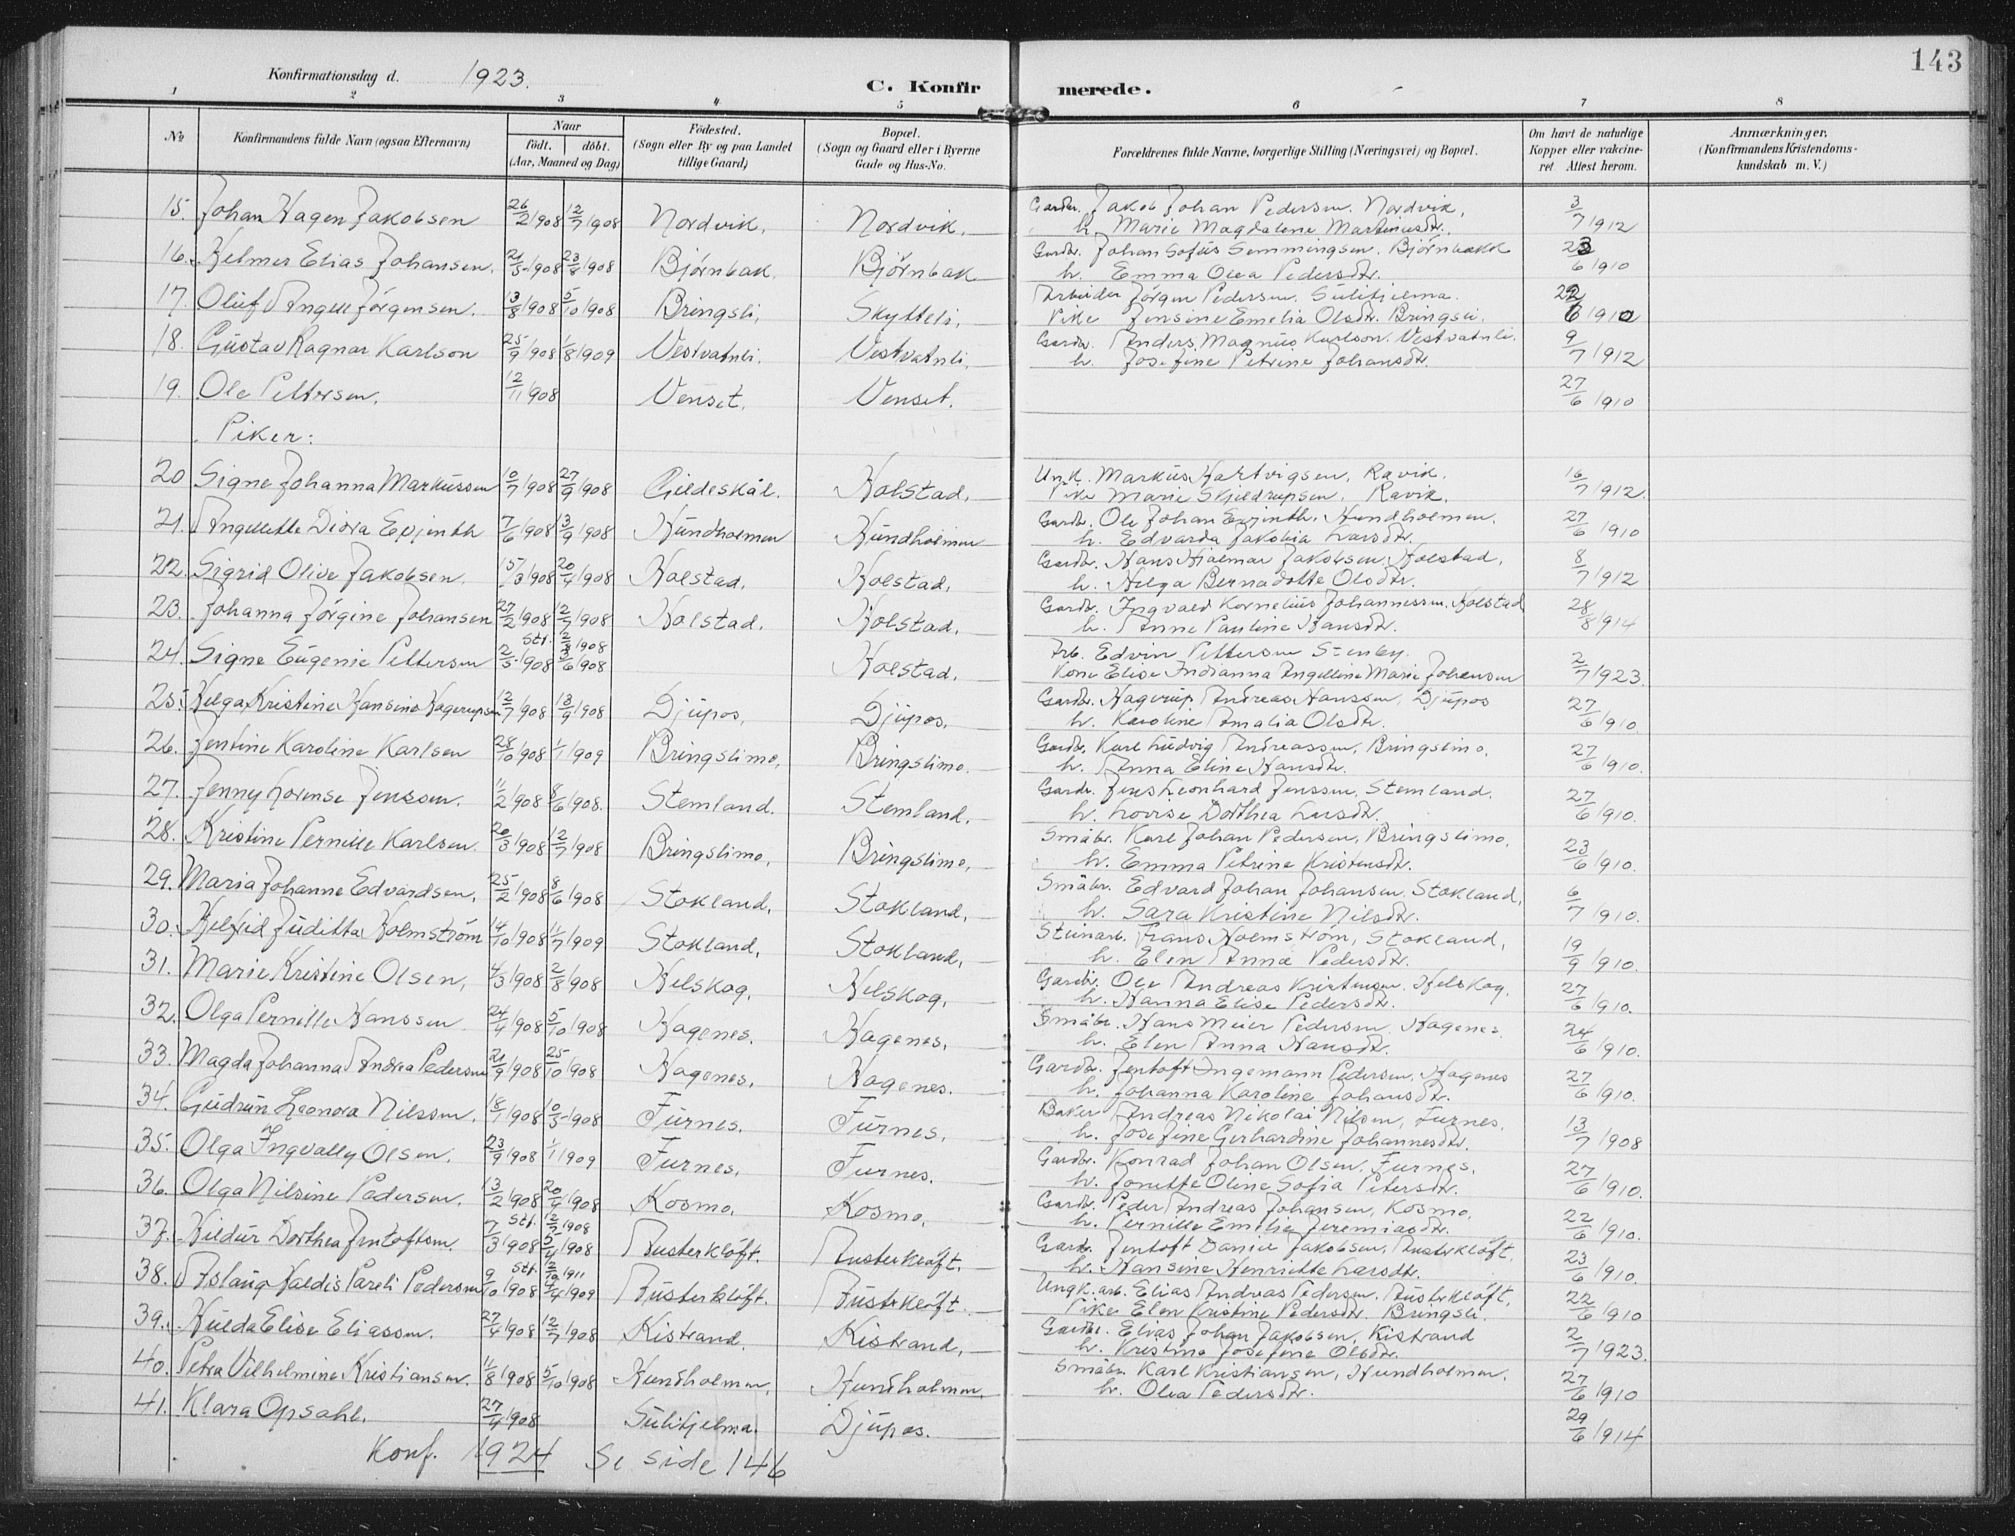 143
Konfirmationsdag d. 1923.
C. Konfirmerede.
1 2 3 4 5 6 7 8
No
Konfirmandens fulde Navn (ogsaa Efternavn)
Naar
født. døbt.
(Aar, Maaned og Dag)
Fødested.
(Sogn eller By og paa Landet
tillige Gaard)
Bopæl.
(Sogn og Gaard eller i Byerne
Gade og Hus-No.
Forældrenes fulde Navne, borgerlige Stilling (Næringsvei) og Bopæl.
Om havt de naturlige
Kopper eller vakcine-
ret. Attest herom.
Anmærkninger.
(Konfirmandens Kristendoms-
kundskab m. V.)
15. Johan Hagen Jakobsen 26/2 1908 12/7 1908 Nordvik. Nordvik. Gardbr. Jakob Johan Pedersen. Nordvik, 3/7 1912
h. Marie Magdalene Martinusdtr.
16. Helmer Elias Johansen. 21/5 1908 23/8 1908 Bjørnbak. Bjørnbak Gardbr. Johan Sofus Semmingsen. Bjørnbakk 23/6 1910
h. Emma Olea Pedersdtr.
17. Oluf Angell Jørgensen. 13/8 1908 5/10 1908 Bringsli, Skytteli, Arbeider Jørgen Pedersen. Sulitjelma. 22/6 1910
Pike Jensine Emelia Olsdtr. Bringsli.
18. Gustav Ragnar Karlson 25/9 1908 1/8 1909 Vestvatnli. Vestvatnli. Gardbr. Anders Magnus Karlson. Vestvatnli. 9/7 1912
h. Josefine Petrine Johansdtr.
19. Ole Pettersen. 12/11 1908 Venset. Venset. 27/6 1910
Piker:
20 Signe Johanna Markussen 10/7 1908 27/9 1908 Gildeskål. Kolstad. Unk. Markus Hartvigsen, Ravik. 16/7 1912.
Pike Marie Skjeldrupsen, Ravik.
21. Angellette Diora Evjenth 7/6 1908 13/9 1908 Hundholmen Hundholmen Gardbr. Ole Johan Evjenth. Hundholmen. 27/6 1910
h. Edvarda Jakobia Larsdtr.
22. Sigrid Olive Jakobsen. 15/3 1908 20/4 1908 Kolstad. Kolstad. Gardbr. Hans Hjalmar Jakobsen, Kolstad, 8/7 1912
h. Helga Bernadotte Olsdtr.
23. Johanna Jørgine Johansen 27/2 1908 12/7 1908 Kolstad. Kolstad. Gardbr. Ingvald Kornelius Johannessen. Kolstad 28/8 1914
h. Anne Pauline Hansdtr.
24. Signe Eugenie Pettersen 2/5 1908 Stf. 1908 6 1908 Kolstad. Arb. Edvin Pettersen Stenby. 2/7 1923.
Kone Elise Indianna Angelline Marie Johansen
25. Helga Kristine Hansine Hagerupsen 12/7 1908 13/9 1908 Djupos, Djupos, Gardbr. Hagerup Andreas Hanssen, Djupos 27/6 1910.
h. Karoline Amalia Olsdtr.
26. Jentine Karoline Karlsen 28/10 1908 1/1 1909 Bringslimo, Bringslimo. Gardbr. Karl Ludvig Andreassen, Bringslimo. 27/6 1910.
h. Anna Eline Hansdtr.
27. Jenny Lorense Jenssen. 11/2 1908 8/6 1908. Stemland. Stemland. Gardbr. Jens Leonhard Jenssen, Stemland. 27/6 1910.
h. Lovise Dorthea Larsdtr.
28. Kristine Pernille Karlsen. 20/3 1908 12/7 1908 Bringslimo, Bringslimo, Småbr. Karl Johan Pedersen, Bringslimo, 23/6 1910.
h. Emma Petrine Kristensdtr.
29. Maria Johanne Edvardsen. 25/2 1908 8/6 1908 Stokland, Stokland, Småbr. Edvard Johan Johansen, Stokland, 6/7 1910.
h. Sara Kristine Nilsdtr.
30. Helfrid Juditta Holmstrøm 14/10 1908 11/7 1909 Stokland, Stokland, Steinarb. Frans Holmstrøm, Stokland, 19/9 1910.
h. Elen Anna Pedersdtr.
31. Marie Kristine Olsen, 4/3 1908 2/8 1908 Helskog, Helskog, Gardbr. Ole Andreas Kristensen. Helskog, 27/6 1910.
h. Hanna Elise Pedersdtr.
32. Olga Pernille Hanssen 24/4 1908 5/10 1908 Hagenes. Hagenes, Småbr. Hans Meier Pedersen, Hagenes. 24/6 1910.
h. Elen Anna Hansdtr.
33. Magda Johanna Andrea Pedersen 21/9 1908 25/10 1908 Hagenes. Hagenes. Gardbr. Jentoft Ingemann Pedersen, Hagenes 27/6 1910.
h. Johanna Karoline Johansdtr.
34. Gudrun Leonora Nilssen. 18/1 1908 10/5 1908 Furnes. Furnes. Baker Andreas Nikolai Nilsen, Furnes. 13/7 1908
h. Josefine Gerhardine Johannesdtr.
35. Olga Ingvally Olsen. 23/9 1908 1/1 1909 Furnes, Furnes. Gardbr. Konrad Johan Olsen, Furnes. 27/6 1910.
h. Jonette Oline Sofia Petersdtr.
36. Olga Nilsine Pedersen. 13/2 1908 20/4 1908 Kosmo, Kosmo, Gardbr. Peder Andreas Johansen, Kosmo. 22/6 1910.
h. Pernille Emilie Jeremiasdtr.
37. Hildur Dorthea Jentoftsen. 7/3 1908 Stf. 12/7 1908 5/4 1908 Austerkløft. Austerkløft. Gardbr. Jentoft Daniel Jakobsen, Austerkløft, 23/6 1910.
h. Hansine Henriette Larsdtr.
38. Aslaug Haldis Pareli Pedersen 9/10 1908 Stf. 1911 4/4 1909 Austerkløft. Austerkløft. Ungk. arb. Elias Andreas Pedersen, Austerkløft, 22/6 1910
Pike Elen Kristine Pedersdtr. Bringsli.
39. Hulda Elise Eliassen. 27/4 1908 12/7 1908 Kistrand. Kistrand, Gardbr. Elias Johan Jakobsen, Kistrand 2/7 1923.
h. Kristine Josefine Olsdtr.
40. Petra Vilhelmine Kristiansen. 11/8 1908 5/10 1908 Hundholmen, Hundholmen, Småbr. Karl Kristiansen, Hundholmen. 27/6 1910
h. Olea Pedersdtr.
41. Klara Opsahl. 27/4 1908 Sulitjelma. Djupos. 29/6 1914
Konf. 1924 Se side 146